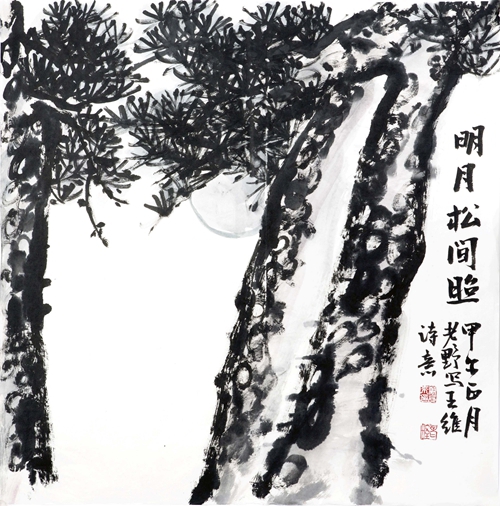 明月松间照
甲午正月
老野写王维
诗意